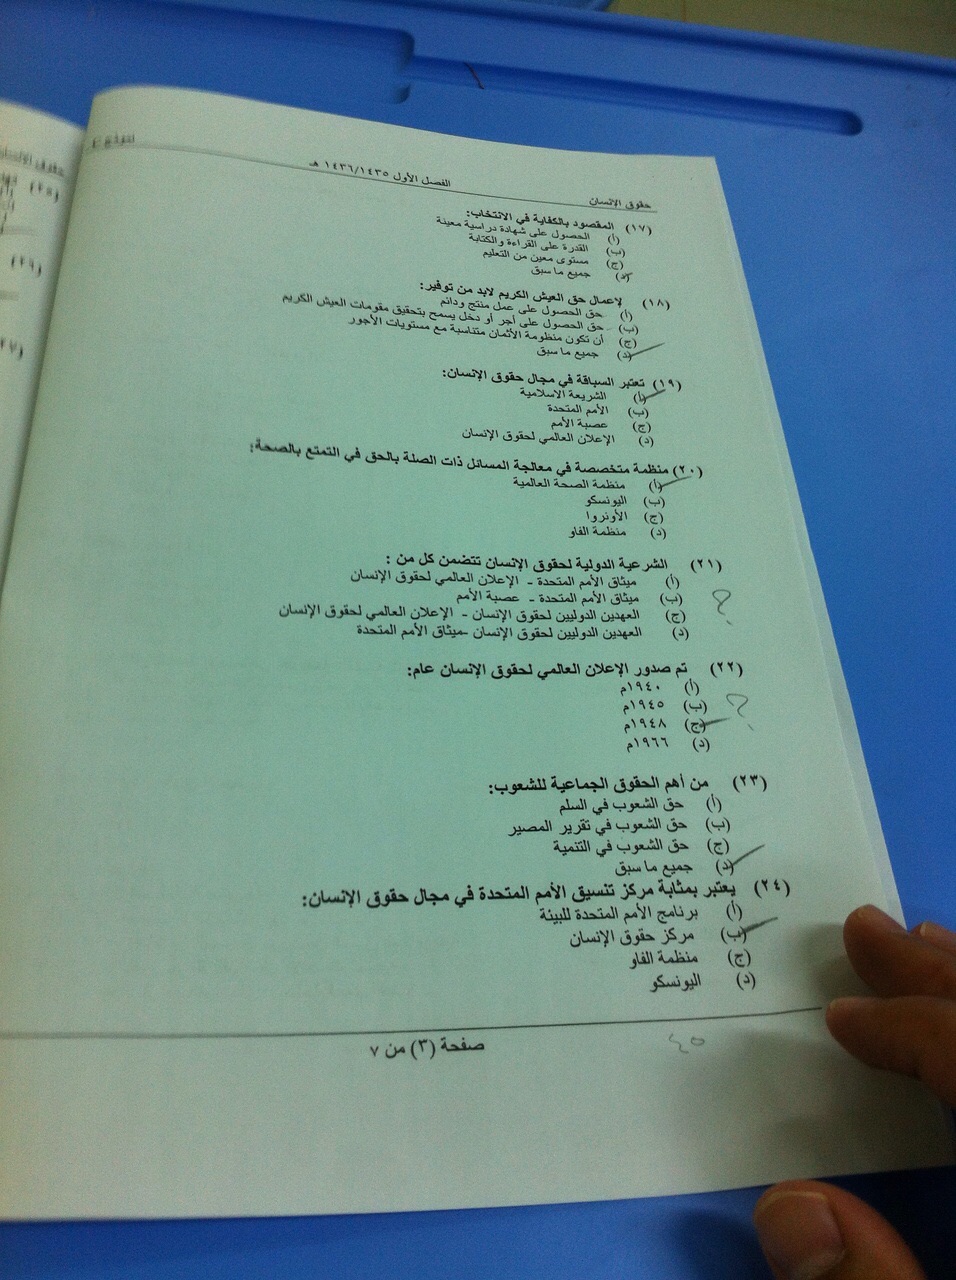 حقوق الإنسان
الفصل الأول ١٤٣٦/١٤٣٥ هـ
نموذج E
(١٧) المقصود بالكفاية في الانتخاب:
(أ) الحصول على شهادة دراسية معينة
(ب) القدرة على القراءة والكتابة
(ج) مستوى معين من التعليم
(د) جميع ما سبق
(١٨) لإعمال حق العيش الكريم لابد من توفير:
(أ) حق الحصول على عمل منتج ودائم
(ب) حق الحصول على أجر أو دخل يسمح بتحقيق مقومات العيش الكريم
(ج) أن تكون منظومة الأثمان متناسبة مع مستويات الأجور
(د) جميع ما سبق
(١٩) تعتبر السباقة في مجال حقوق الإنسان:
(أ) الشريعة الاسلامية
(ب) الأمم المتحدة
(ج) عصبة الأمم
(د) الإعلان العالمي لحقوق الإنسان
(٢٠) منظمة متخصصة في معالجة المسائل ذات الصلة بالحق في التمتع بالصحة:
(أ) منظمة الصحة العالمية
(ب) اليونسكو
(ج) الأونروا
(د) منظمة الفاو
(٢١) الشرعية الدولية لحقوق الإنسان تتضمن كل من :
(أ) ميثاق الأمم المتحدة - الإعلان العالمي لحقوق الإنسان
(ب) ميثاق الأمم المتحدة - عصبة الأمم
(ج) العهدين الدوليين لحقوق الإنسان - الإعلان العالمي لحقوق الإنسان
(د) العهدين الدوليين لحقوق الإنسان -ميثاق الأمم المتحدة
(٢٢) تم صدور الإعلان العالمي لحقوق الإنسان عام:
(أ) ١٩٤٠م
(ب) ١٩٤٥م
(ج) ١٩٤٨م
(د) ١٩٦٦م
(٢٣) من أهم الحقوق الجماعية للشعوب:
(أ) حق الشعوب في السلم
(ب) حق الشعوب في تقرير المصير
(ج) حق الشعوب في التنمية
(د) جميع ما سبق
(٢٤) يعتبر بمثابة مركز تنسيق الأمم المتحدة في مجال حقوق الإنسان:
(أ) برنامج الأمم المتحدة للبيئة
(ب) مركز حقوق الإنسان
(ج) منظمة الفاو
(د) اليونسكو
صفحة (٣) من ٧
حقوق الإنسان
(٢٥)
(٢٦)